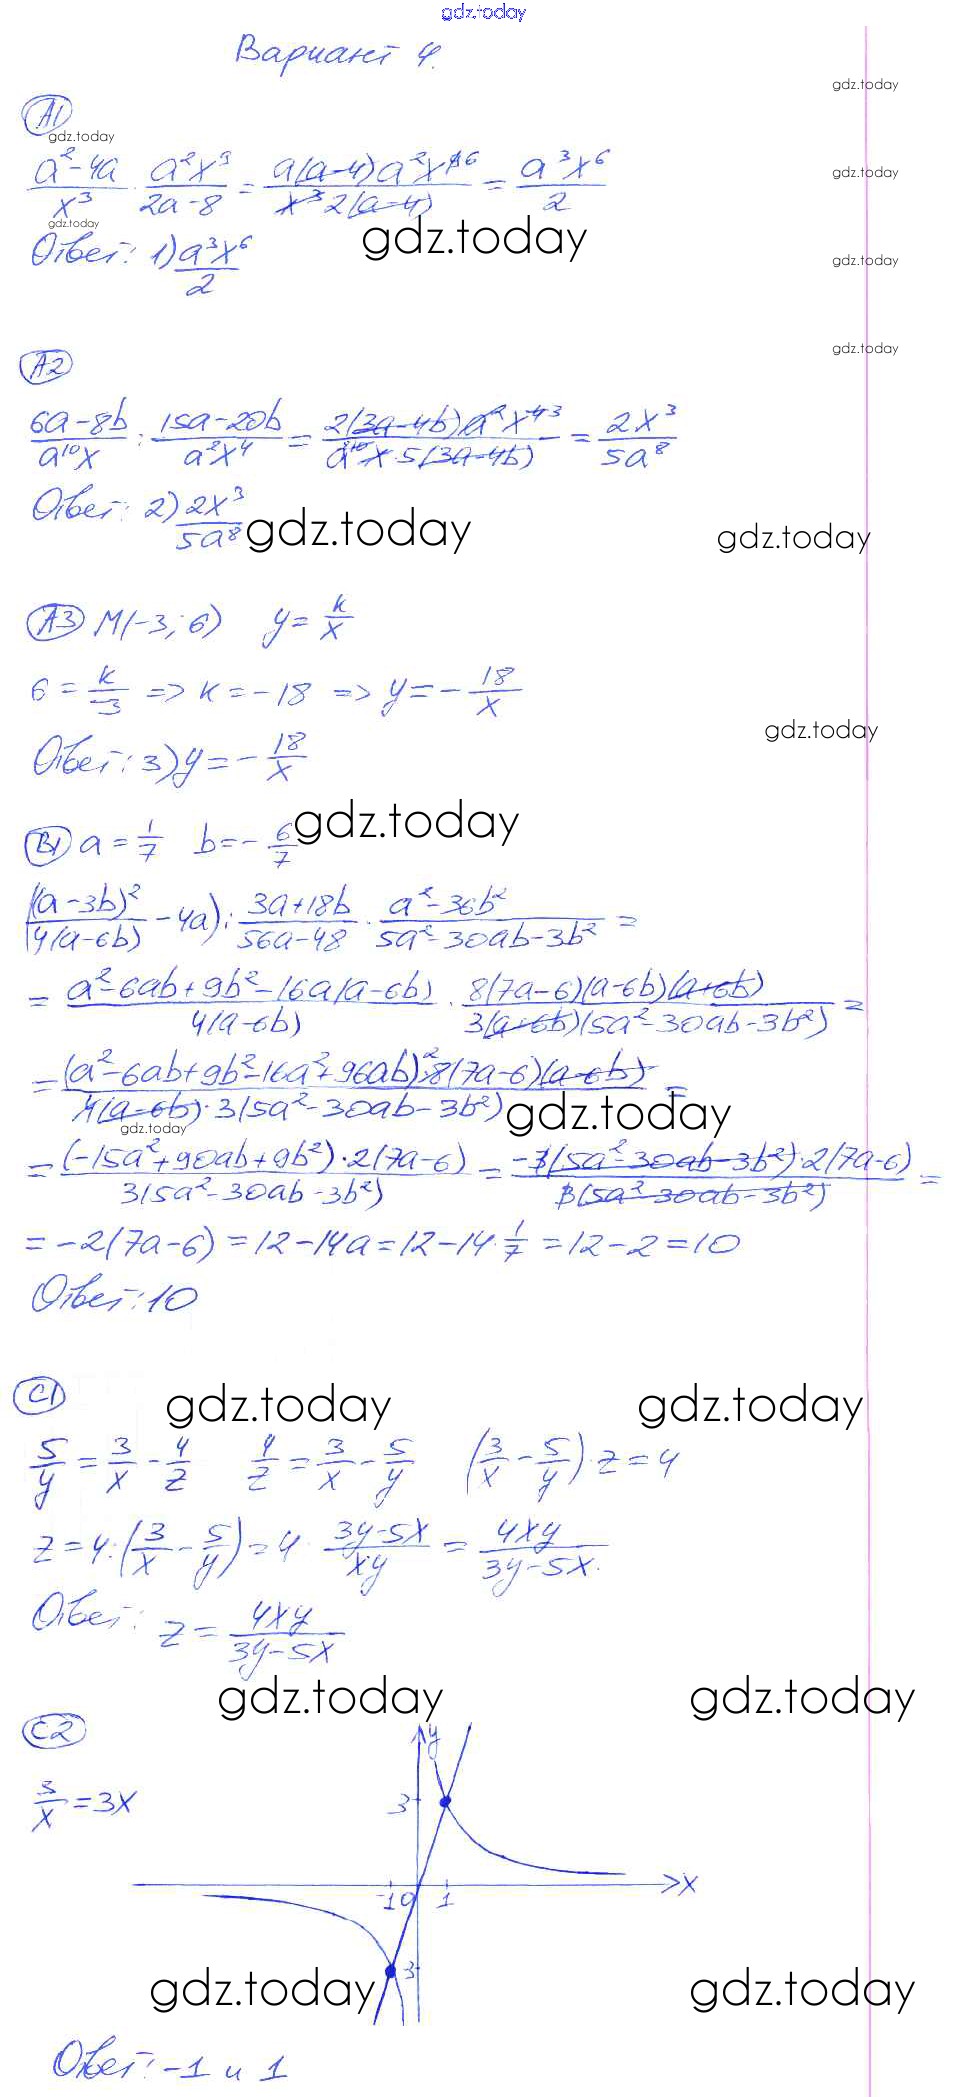 gdz.today
Вариант 4.
gdz.today
A1
gdz.today
(a² - 4a)/x³ · (a²x⁹)/(2a - 8) = (a(a-4)a²x⁹⁶)/(x³2(a-4)) = (a³x⁶)/2
gdz.today
gdz.today
Ответ: 1) (a³x⁶)/2
gdz.today
gdz.today
gdz.today
A2
(6a - 8b)/(a¹⁰x) : (15a - 20b)/(a²x⁴) = (2(3a-4b)a²x⁴³)/(a¹⁰x·5(3a-4b)) = (2x³)/(5a⁸)
Ответ: 2) (2x³)/(5a⁸)
gdz.today
gdz.today
A3 M(-3; 6) y = k/x
6 = k/-3 => k = -18 => y = -18/x
gdz.today
Ответ: 3) y = -18/x
gdz.today
B1 a = 1/7 b = -6/7
((a - 3b)²/(4(a-6b)) - 4a) : (3a+18b)/(56a-48) · (a²-36b²)/(5a²-30ab-3b²) =
= (a²-6ab+9b²-16a(a-6b))/(4(a-6b)) · (8(7a-6)(a-6b)(a+6b))/(3(a+6b)(5a²-30ab-3b²)) =
= ((a²-6ab+9b²-16a²+96ab)²·8(7a-6)(a-6b))/(4(a-6b)·3(5a²-30ab-3b²)) =
gdz.today
gdz.today
= ((-15a²+90ab+9b²)·2(7a-6))/(3(5a²-30ab-3b²)) = (-3(5a²-30ab-3b²)·2(7a-6))/(3(5a²-30ab-3b²)) =
= -2(7a-6) = 12-14a = 12-14·1/7 = 12-2 = 10
Ответ: 10
C1
gdz.today
gdz.today
5/y = 3/x - 4/z 4/z = 3/x - 5/y (3/x - 5/y)·z = 4
z = 4:(3/x - 5/y) = 4· (3y-5x)/(xy) = (4xy)/(3y-5x).
Ответ: z = (4xy)/(3y-5x)
gdz.today
gdz.today
C2
y
3/x = 3x
3
x
-1 0 1
3
gdz.today
gdz.today
Ответ: -1 и 1